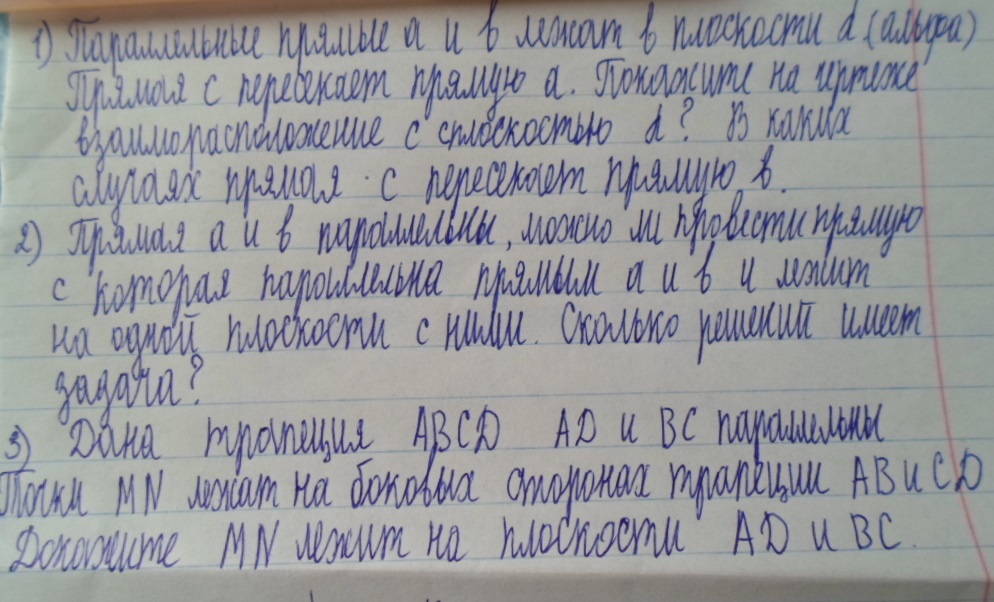 1) Параллельные прямые а и в лежат в плоскости d (альфа)
Прямая с пересекает прямую а. Покажите на чертеже
взаиморасположение с сплоскостью d? В каких
случаях прямая с пересекает прямую в.
2) Прямая а и в параллельны, можно ли провести прямую
с которая параллельна прямым а и в и лежит
на одной плоскости с ними. Сколько решений имеет
задача?
3) Дана трапеция ABCD AD и BC параллельны
Точки MN лежат на боковых сторонах трапеции AB и CD
Докажите MN лежит на плоскости AD и BC.